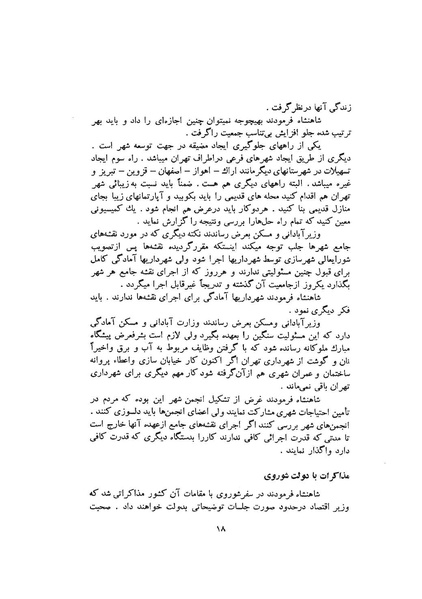 زندگی آنها در نظر گرفت .
شاهنشاه فرمودند بهیچوجه نمیتوان چنین اجازه‌ای را داد و باید بهر
ترتیب شده جلو افزایش بی‌تناسب جمعیت را گرفت .
یکی از راههای جلوگیری ایجاد مضیقه در جهت توسعه شهر است .
دیگری از طریق ایجاد شهرهای فرعی در اطراف تهران میباشد . راه سوم ایجاد
تسهیلات در شهرستانهای دیگر مانند اراك – اهواز – اصفهان – قزوین – تبریز و
غیره میباشد . البته راههای دیگری هم هست . ضمناً باید نسبت به زیبائی شهر
تهران هم اقدام کنید محله های قدیمی را باید بکوبید و آپارتمانهای زیبا بجای
منازل قدیمی بنا کنید . هردوکار باید درعرض هم انجام شود . یك کمیسیونی
معین کنید که تمام راه حل‌ها را بررسی ونتیجه را گزارش نماید .
وزیر آبادانی و مسکن بعرض رساندند نکته دیگری که در مورد نقشه‌های
جامع شهرها جلب توجه میکند اینستکه مقررگردیده نقشه‌ها پس ازتصویب
شورایعالی شهرسازی توسط شهرداریها اجرا شود ولی شهرداریها آمادگی کامل
برای قبول چنین مسئولیتی ندارند و هرروز که از اجرای نقشه جامع هر شهر
بگذارد یکروز ازجامعیت آن گذشته و تدریجاً غیرقابل اجرا میگردد .
شاهنشاه فرمودند شهرداریها آمادگی برای اجرای نقشه‌ها ندارند . باید
فکر دیگری نمود .
وزیرآبادانی ومسکن بعرض رساندند وزارت آبادانی و مسکن آمادگی
دارد که این مسئولیت سنگین را بعهده بگیرد ولی لازم است بشرفعرض پیشگاه
مبارك ملوکانه رسانده شود که با گرفتن وظایف مربوط به آب و برق واخیراً
نان و گوشت از شهرداری تهران اگر اکنون کار خیابان سازی واعطاء پروانه
ساختمان و عمران شهری هم ازآن گرفته شود کار مهم دیگری برای شهرداری
تهران باقی نمی‌ماند .
شاهنشاه فرمودند غرض از تشکیل انجمن شهر این بوده که مردم در
تأمین احتیاجات شهری مشارکت نمایند ولی اعضای انجمن‌ها باید دلسوزی کنند .
انجمن‌های شهر بررسی کنند اگر اجرای نقشه‌های جامع ازعهده آنها خارج است
تا مدتی که قدرت اجرائی کافی ندارند کاررا بدستگاه دیگری که قدرت کافی
دارد واگذار نمایند .
مذاکرات با دولت شوروی
شاهنشاه فرمودند در سفر شوروی با مقامات آن کشور مذاکراتی شد که
وزیر اقتصاد درحدود صورت جلسات توضیحاتی بدولت خواهند داد . صحبت
۱۸